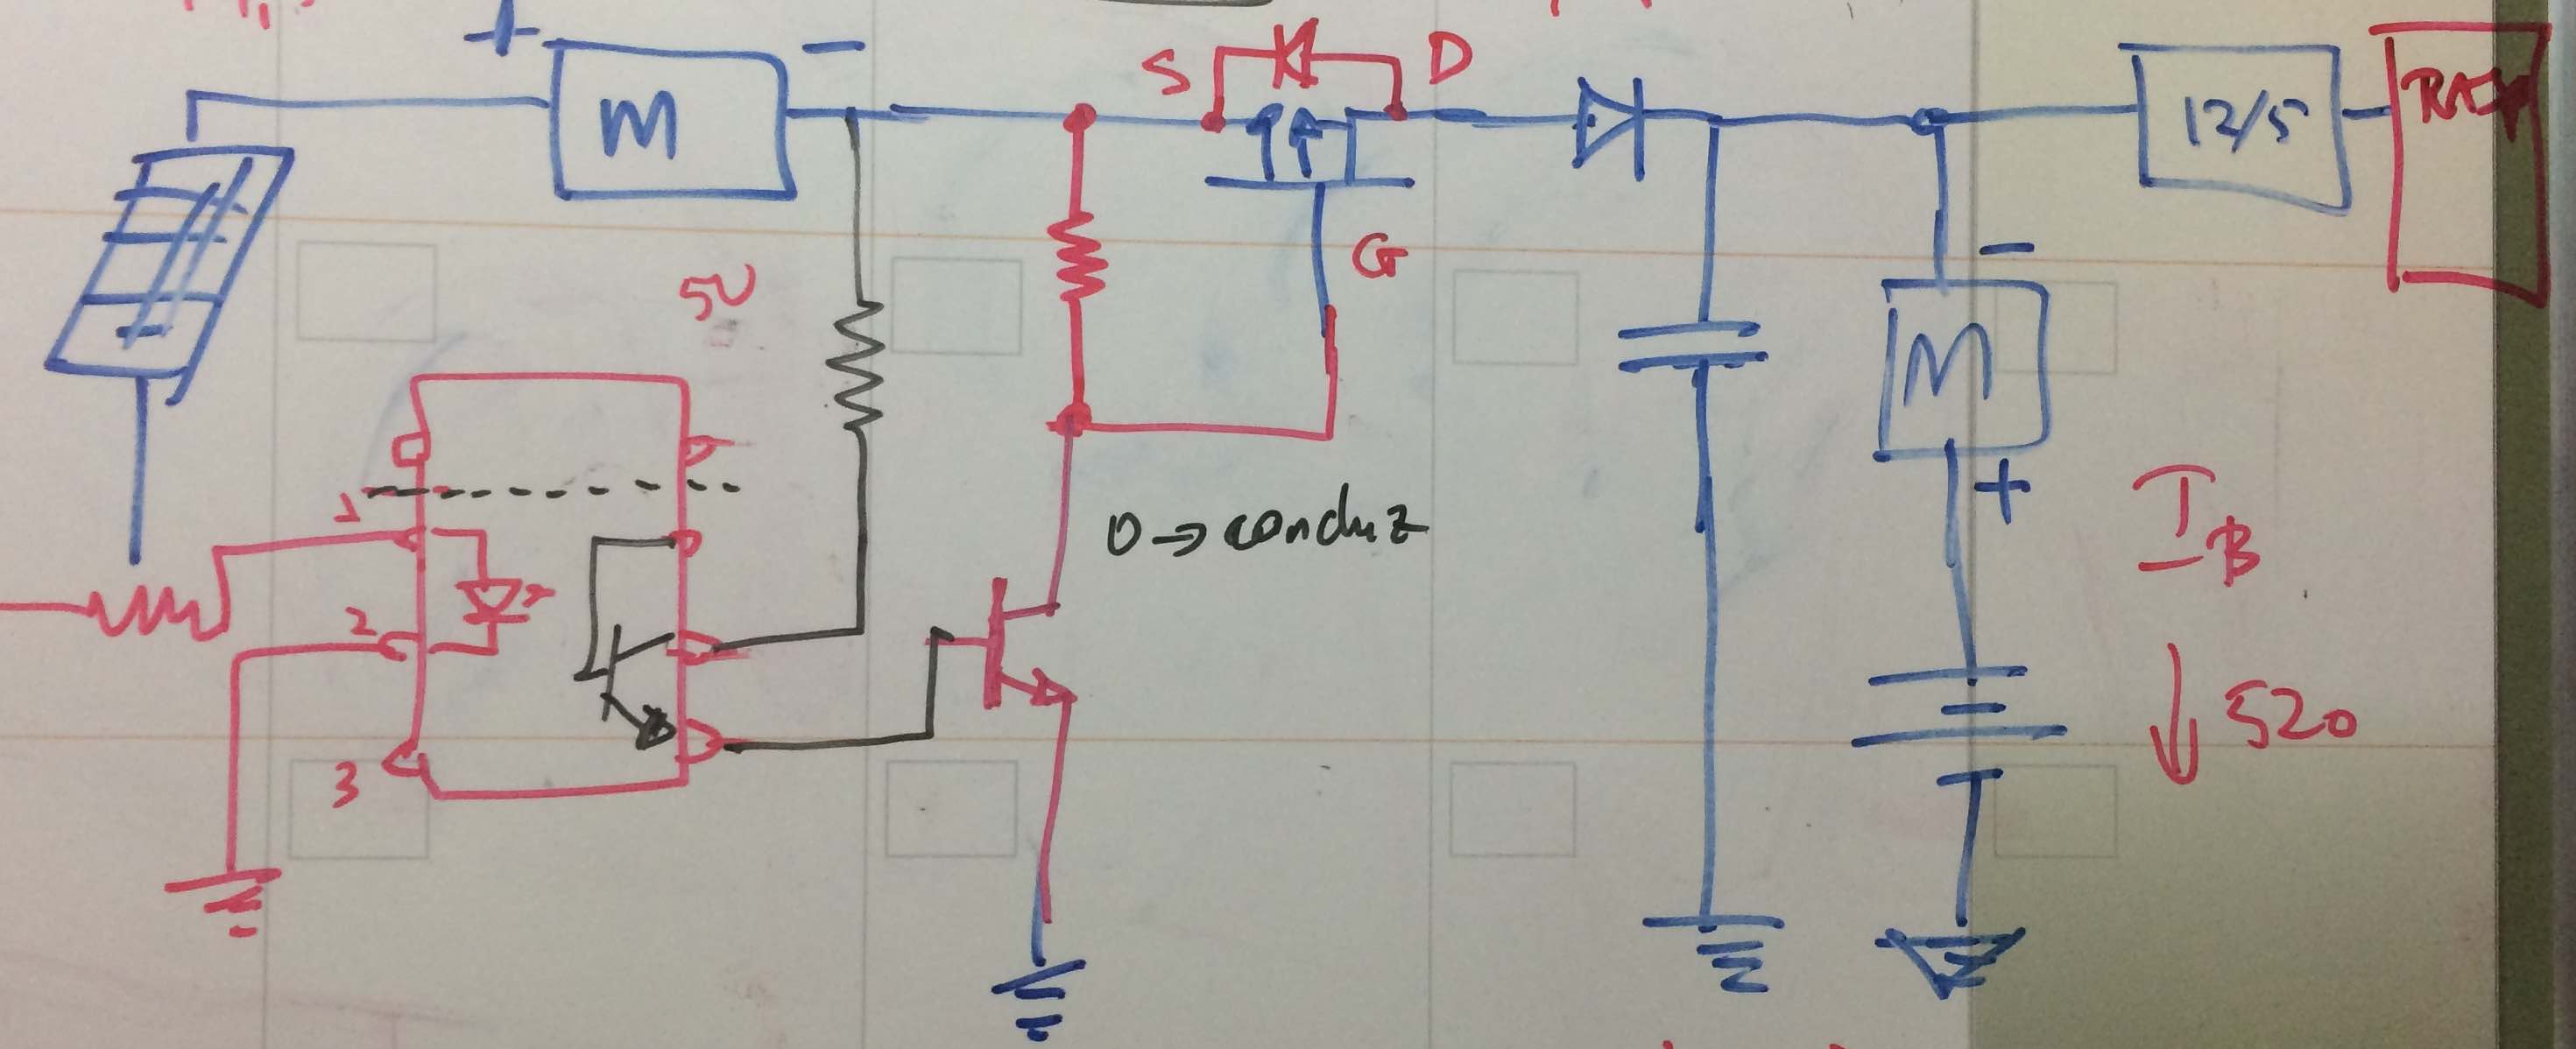 +
M
-
S
D
12/5
G
5V
-
M
+
1
2
3
0 → conduz
I_B
↓ 520